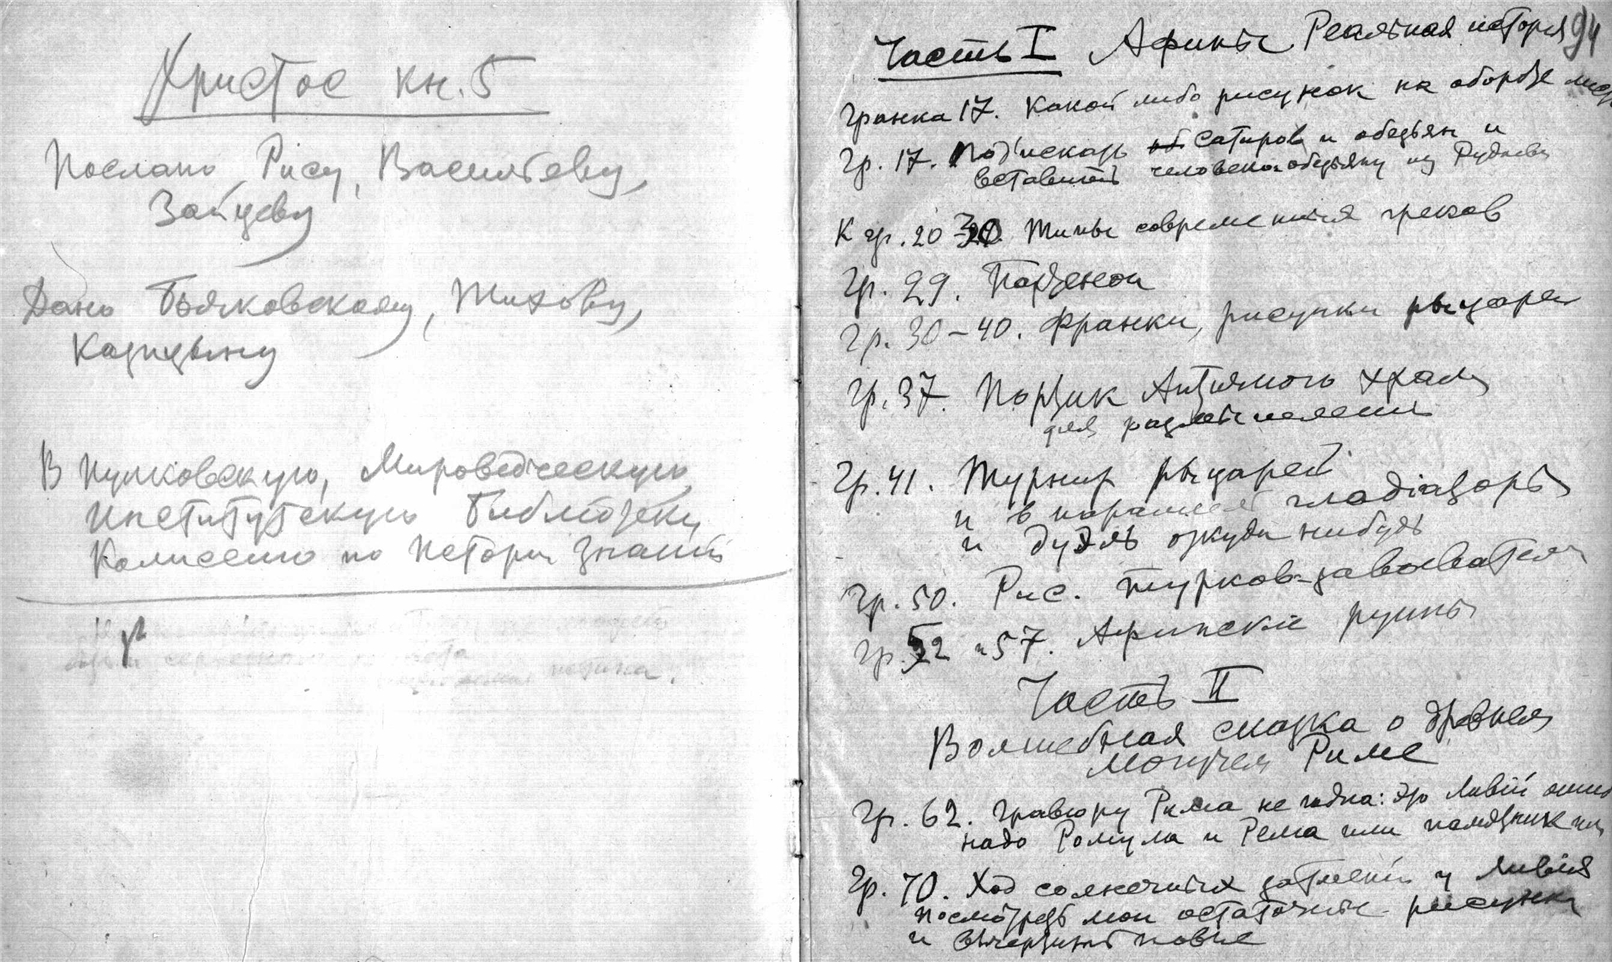 Христос кн. 5
Послано Рису, Васильеву,
Зайцеву
Дано Тихову,
Казицыну
В Пулковскую, Мироведческую,
Институтскую библіотеку
Комиссию по Истории Знаній
94
Часть I Афины Реальная история
Гранка 17. Какой либо рисунок на обороте
Гр. 17. Подъискать сатиров и обезьян и
вставить человекообезьяну из
К гр. 20 30 Типы современных греков
Гр. 29. Парфенон
Гр. 30-40. Франки, рисунки рыцарей
Гр. 37. Портик Античного храма
для размышления
Гр. 41. Турнир рыцарей
и в параллель гладіаторы
и дуэль откуда нибудь
Гр. 50. Рис. турков-завоевателей
Гр. 52 и 57. Афинские руины
Часть II
Волшебная сказка о древнем
могучем Риме
Гр. 62. Гравюру Рима не годна: это Ливій
надо Ромула и Рема или памятник их
Гр. 70. Ход солнечных затменій у Ливія
посмотреть мои остаточные рисунки
и вычертить новые